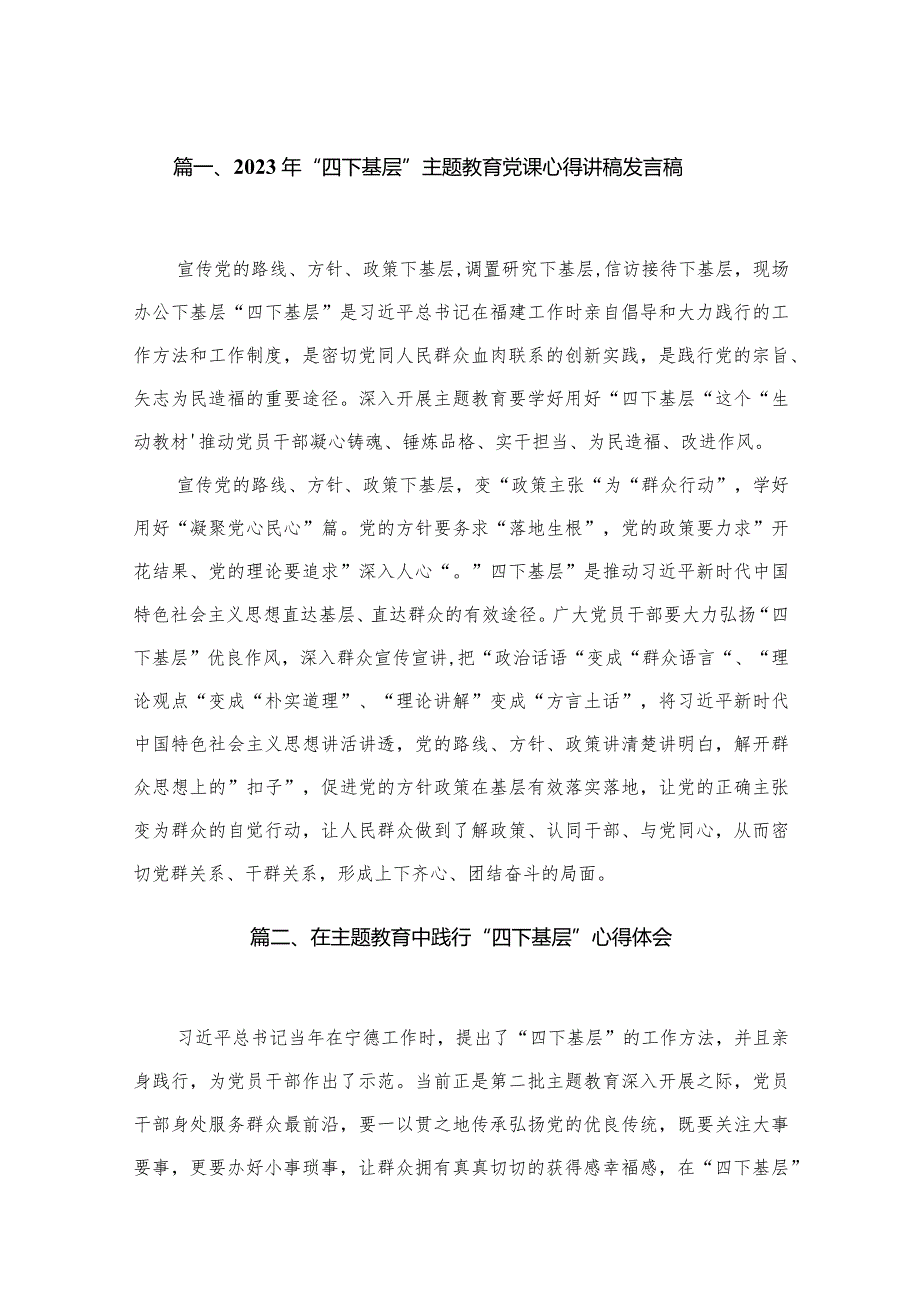 篇一、2023年“四下基层”主题教育党课心得讲稿发言稿
宣传党的路线、方针、政策下基层,调置研究下基层,信访接待下基层，现场
办公下基层“四下基层”是习近平总书记在福建工作时亲自倡导和大力践行的工
作方法和工作制度，是密切党同人民群众血肉联系的创新实践，是践行党的宗旨、
矢志为民造福的重要途径。深入开展主题教育要学好用好“四下基层“这个“生
动教材'推动党员干部凝心铸魂、锤炼品格、实干担当、为民造福、改进作风。
宣传党的路线、方针、政策下基层，变“政策主张“为“群众行动”，学好
用好“凝聚党心民心”篇。党的方针要务求“落地生根”，党的政策要力求”开
花结果、党的理论要追求”深入人心“。”四下基层”是推动习近平新时代中国
特色社会主义思想直达基层、直达群众的有效途径。广大党员干部要大力弘扬“四
下基层”优良作风，深入群众宣传宣讲,把“政治话语“变成“群众语言“、“理
论观点“变成“朴实道理”、“理论讲解”变成“方言土话”，将习近平新时代
中国特色社会主义思想讲活讲透，党的路线、方针、政策讲清楚讲明白，解开群
众思想上的”扣子”，促进党的方针政策在基层有效落实落地，让党的正确主张
变为群众的自觉行动，让人民群众做到了解政策、认同干部、与党同心，从而密
切党群关系、干群关系，形成上下齐心、团结奋斗的局面。
篇二、在主题教育中践行“四下基层”心得体会
习近平总书记当年在宁德工作时，提出了“四下基层”的工作方法，并且亲
身践行，为党员干部作出了示范。当前正是第二批主题教育深入开展之际，党员
干部身处服务群众最前沿，要一以贯之地传承弘扬党的优良传统，既要关注大事
要事，更要办好小事琐事，让群众拥有真真切切的获得感幸福感，在“四下基层”